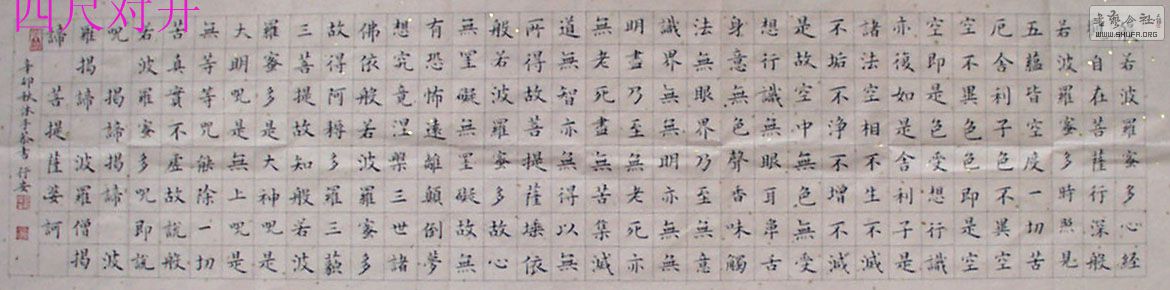 若波羅蜜多心経
自在菩薩行深般
若波羅蜜多時照見
五蘊皆空度一切苦
厄舍利子色不異空
空不異色色即是空
空即是色受想行識
亦復如是舍利子是
諸法空相不生不滅
不垢不淨不增不減
是故空中無色無受
想行識無眼耳鼻舌
身意無色聲香味觸
法無眼界乃至無意
識界無無明亦無無
明盡乃至無老死亦
無老死盡無苦集滅
道無智亦無得以無
所得故菩提薩埵依
般若波羅蜜多故心
無罣礙無罣礙故無
有恐怖遠離顛倒夢
想究竟涅槃三世諸
佛依般若波羅蜜多
故得阿耨多羅三藐
三菩提故知般若波
羅蜜多是大神咒是
大明咒是無上咒是
無等等咒能除一切
苦真實不虛故說般
若波羅蜜多咒即說
咒 揭諦揭諦 波
羅揭諦 波羅僧揭
諦 菩提薩婆訶
辛卯秋沐手恭書行安
四尺对开
WWW.SHUFA.ORG